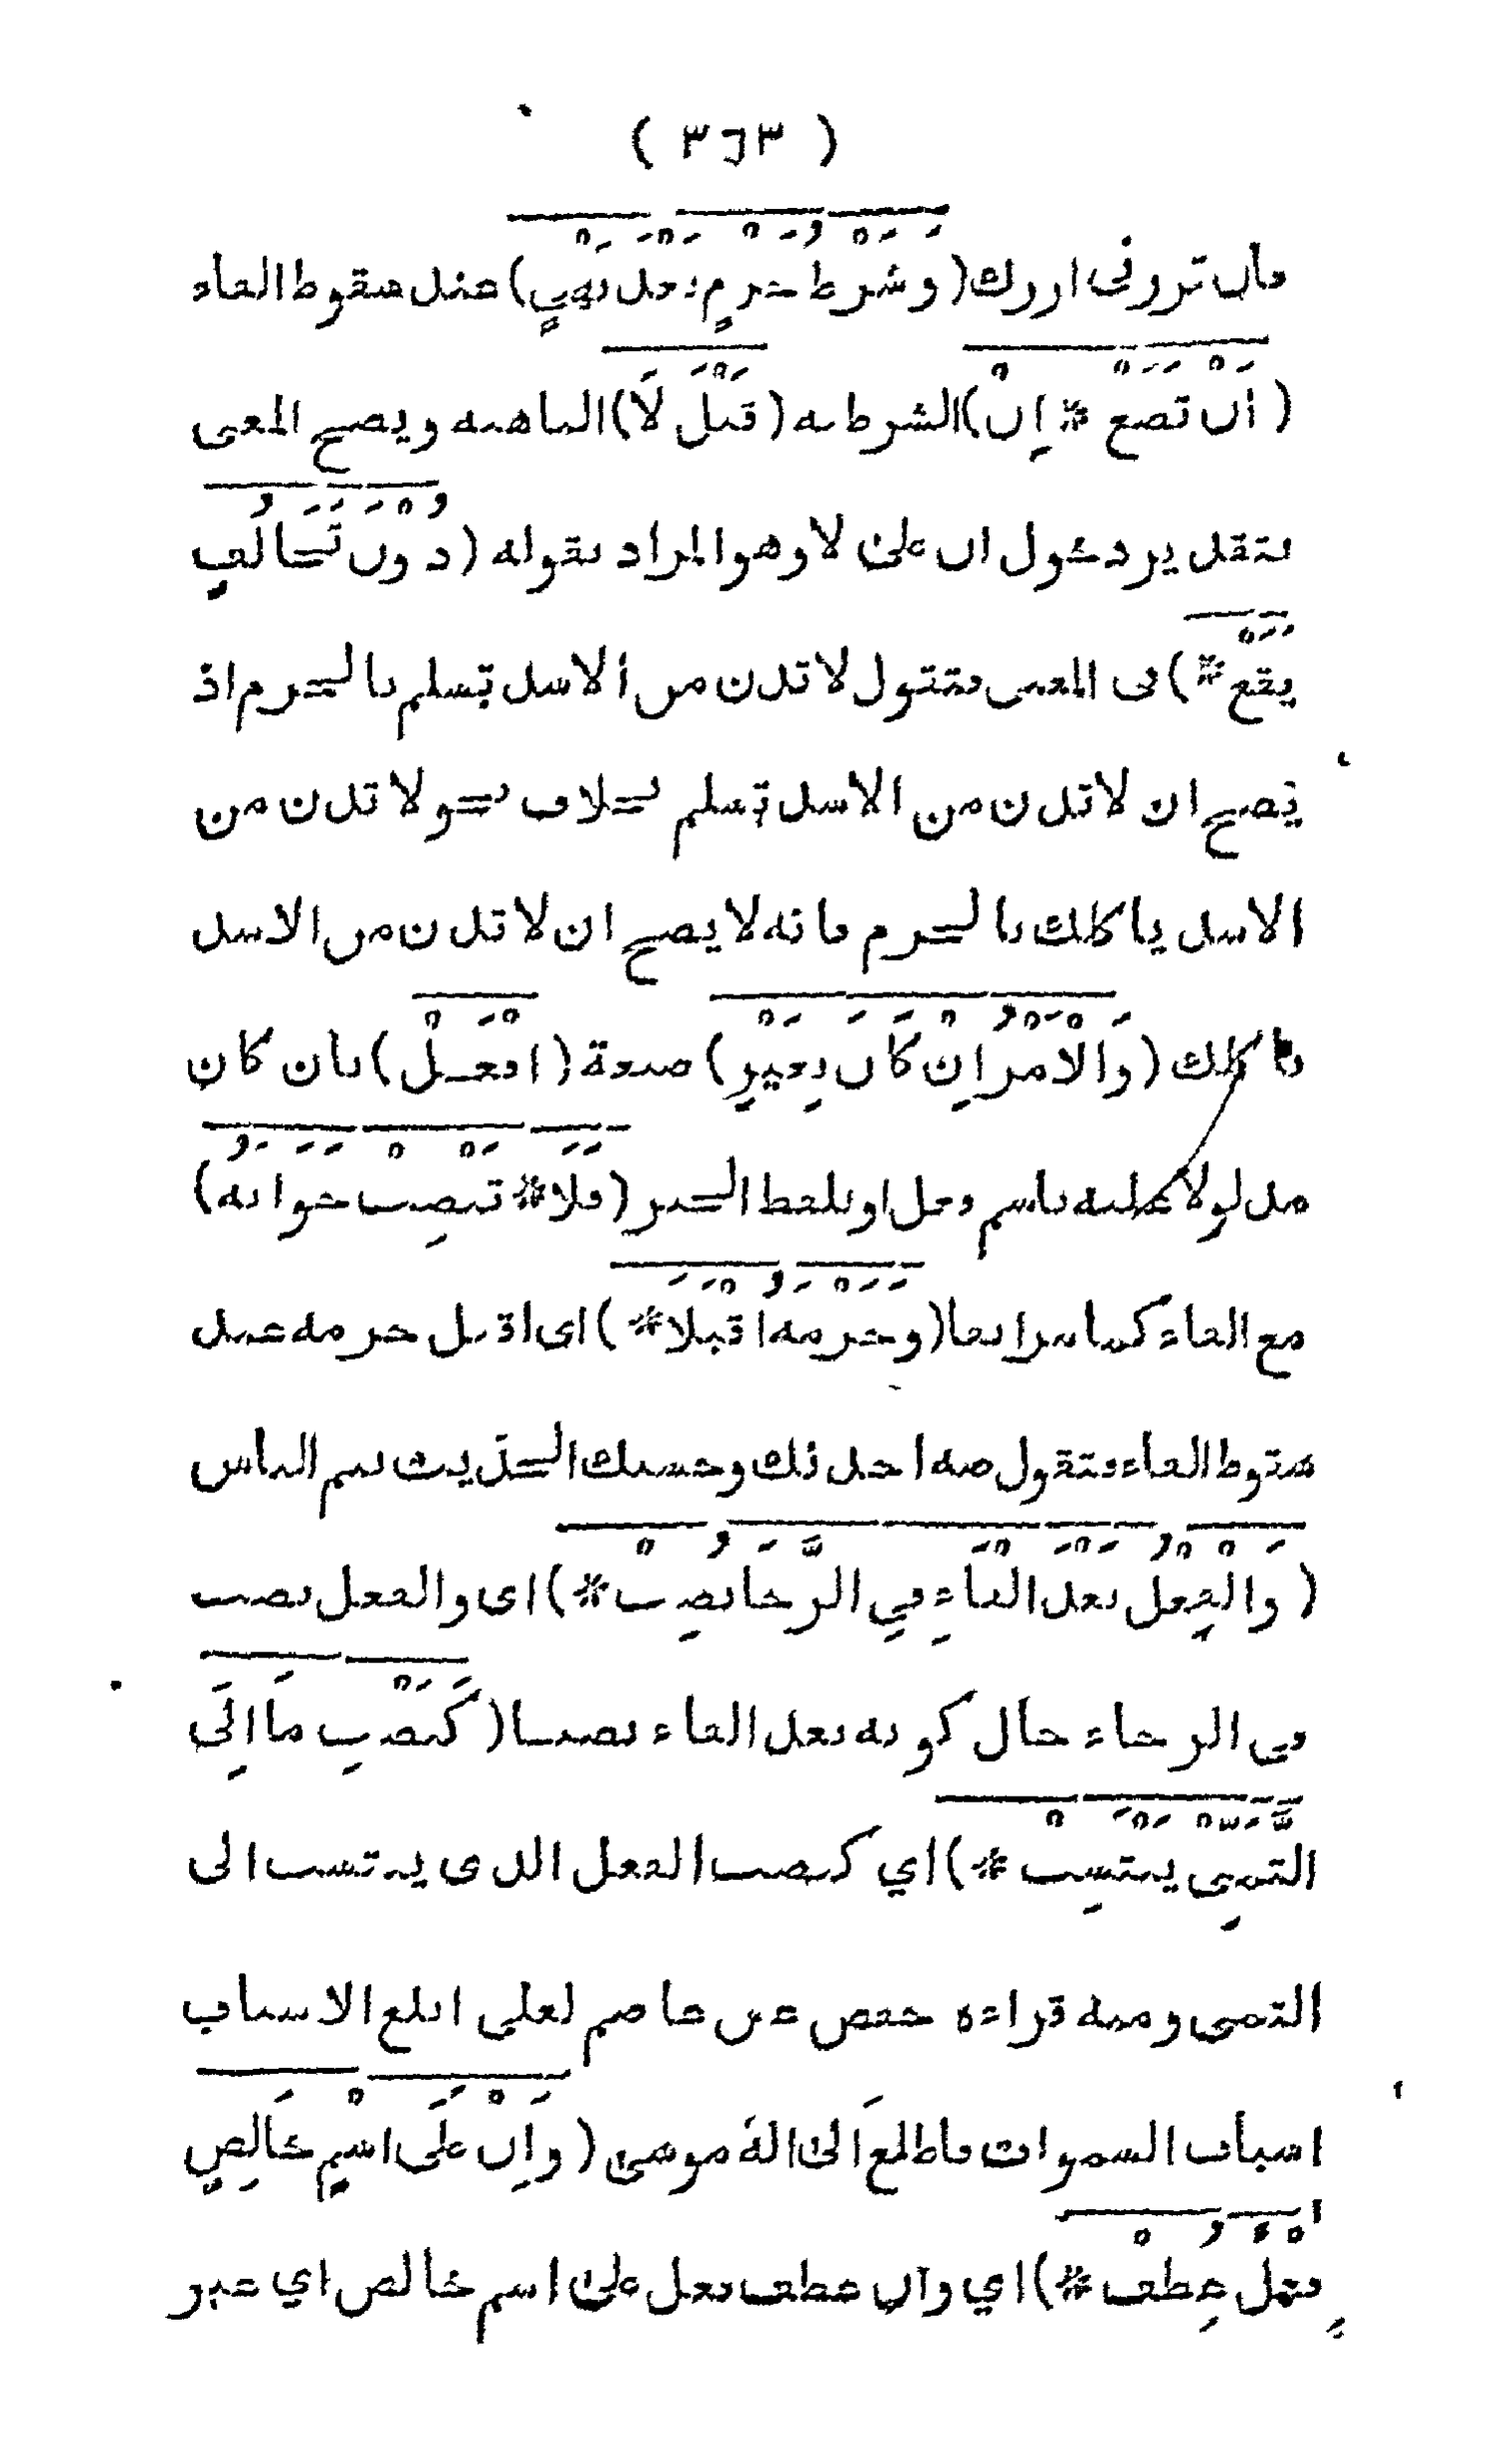 ( ٣٦٣ )
فان تزرونى ازرك (وَشَرْطُ جَزْمٍ بَعْدَ نَهْيٍ) عند سقوط الفاء
(اَنْ تَضَعْ * اِنْ) الشرطيه (قَبْلَ لَا) الناهيه ويصح المعنى
بتقدير دخول ان على لا وهو المراد بقوله (دُوْنَ تَخَالُفٍ
يَقَعْ *) فى المعنى فتقول لا تدن من الاسد تسلم بالجزم اذ
يصح ان لا تدن من الاسد تسلم بخلاف نحو لا تدن من
الاسد ياكلك بالجزم فانه لا يصح ان لا تدن من الاسد
ياكلك (وَالْاَمْرُ اِنْ كَانَ بِغَيْرِ) صيغة (افْعَلْ) بان كان
مدلولا عليه باسم فعل او بلفظ الخبر (فَلَا * تَنْصِبْ جَوَابَهُ)
مع الفاء كما مر انفا (وَجَزْمَهُ اقْبَلَا *) اى اقبل جزمه عند
سقوط الفاء فتقول صه احدثك وحسبك الحديث ينم الناس
(وَالْفِعْلُ بَعْدَ الْفَاءِ فِي الرَّجَا نُصِبْ *) اى والفعل نصب
فى الرجاء حال كونه بعد الفاء نصبا (كَنَصْبِ مَا اِلَى
التَّمَنِّى يَنْتَسِبْ *) اي كنصب الفعل الذى ينتسب الى
التمنى ومنه قراءة حفص عن عاصم لعلى ابلغ الاسباب
اسباب السموات فاطلعَ الى اله موسى (وَاِنْ عَلَى اسْمٍ خَالِصٍ
فِعْلٌ عُطِفْ *) اي وان عطف فعل على اسم خالص اي غير